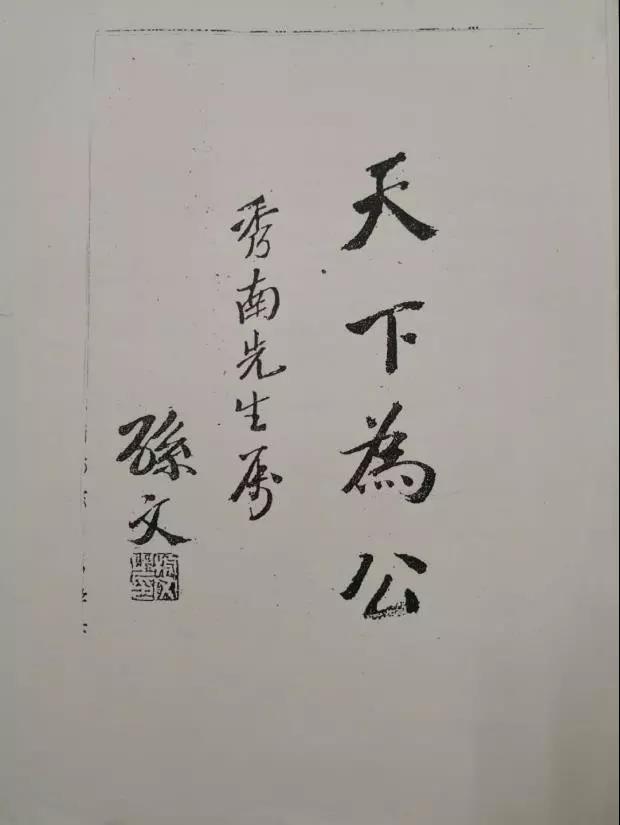 天下為公
秀南先生属
孫文